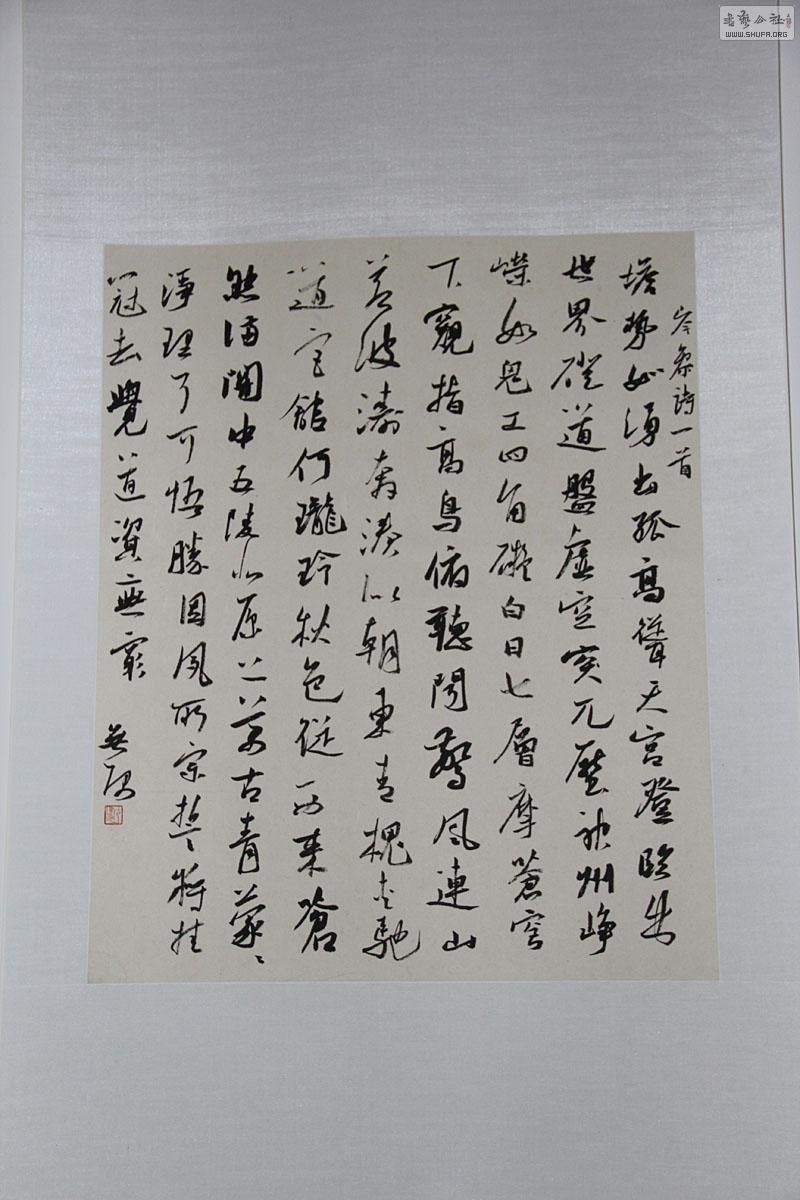 書藝公社
WWW.SHUFA.ORG
岑參詩一首
塔勢如湧出孤高聳天宮登臨出
世界磴道盤虛空突兀壓神州崢
嶸如鬼工四角礙白日七層摩蒼穹
下窺指高鳥俯聽聞驚風連山
若波濤奔湊似朝東青槐夾馳
道宮館何瓏玲秋色從西來蒼
然滿關中五陵北原上萬古青蒙々
淨理了可悟勝因夙所宗誓將挂
冠去覺道資無窮